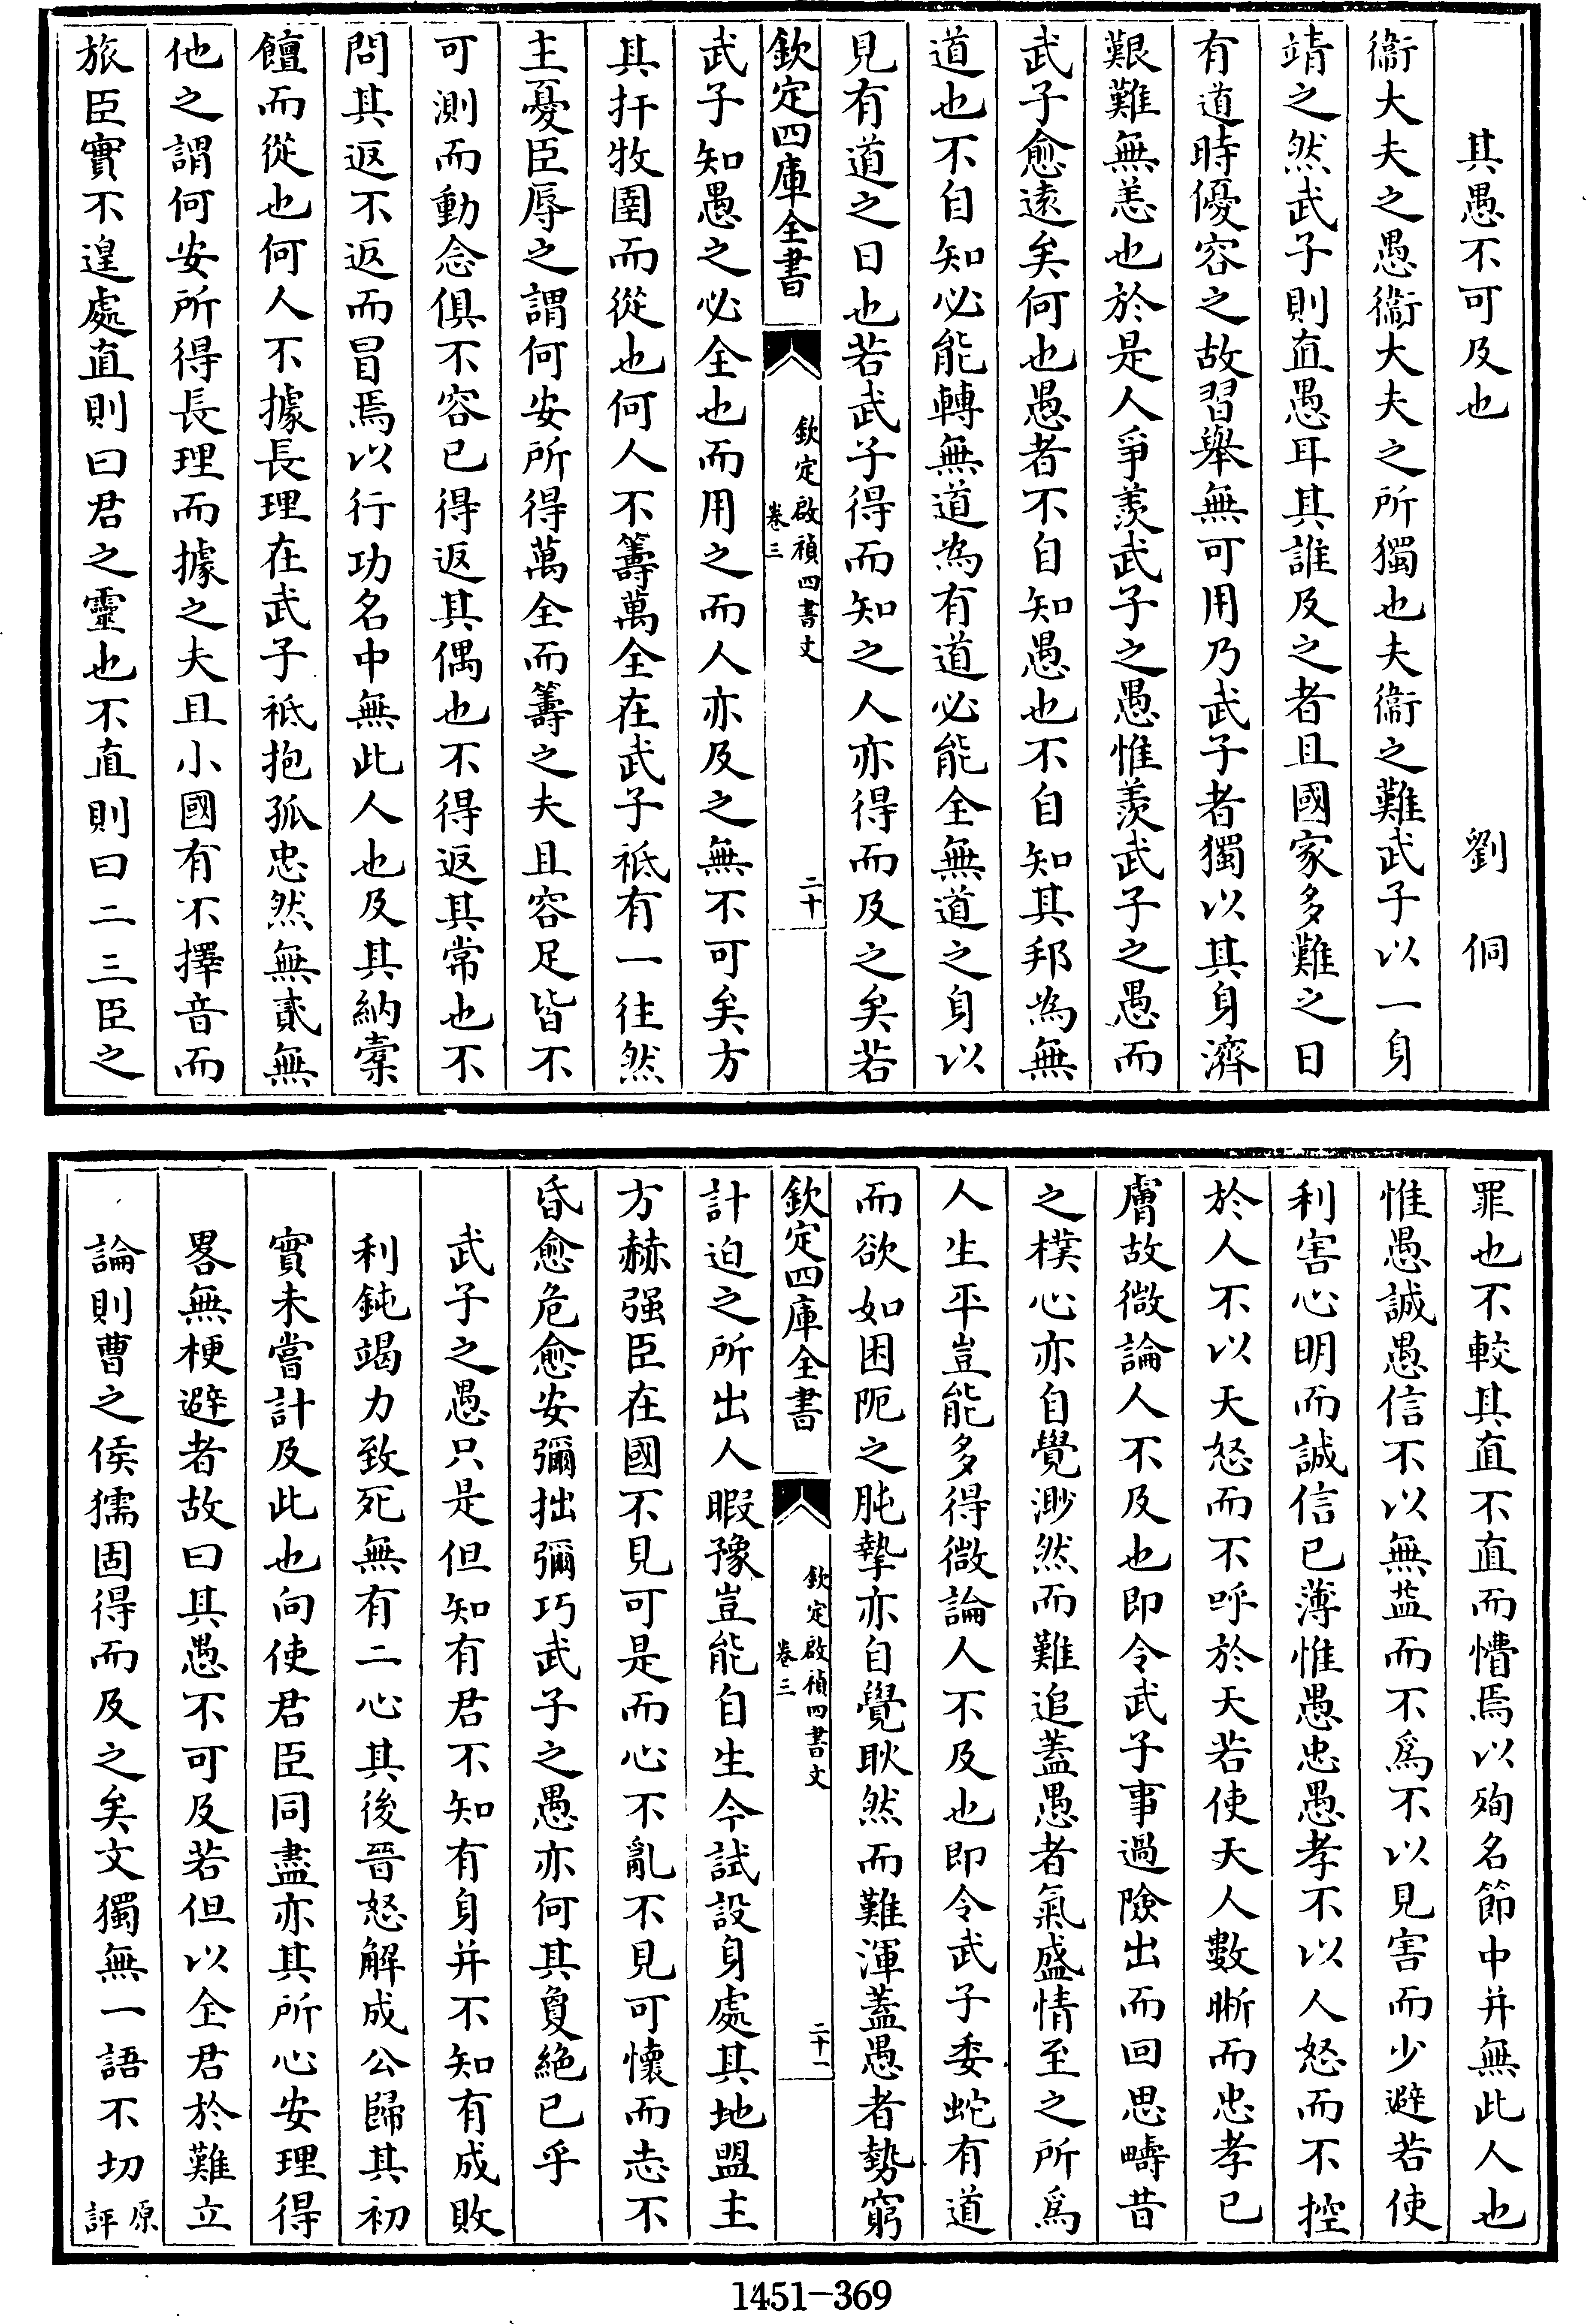 其愚不可及也　劉侗
衞大夫之愚衞大夫之所獨也夫衞之難武子以一身
靖之然武子則直愚耳其誰及之者且國家多難之日
有道時優容之故習舉無可用乃武子者獨以其身濟
艱難無恙也於是人爭羨武子之愚惟羨武子之愚而
武子愈遠矣何也愚者不自知愚也不自知其邦為無
道也不自知必能轉無道為有道必能全無道之身以
見有道之日也若武子得而知之人亦得而及之矣若
欽定四庫全書　欽定啟禎四書文　卷三　二十
武子知愚之必全也而用之而人亦及之無不可矣方
其扞牧圉而從也何人不籌萬全在武子祗有一往然
主憂臣辱之謂何安所得萬全而籌之夫且容足皆不
可測而動念俱不容已得返其偶也不得返其常也不
問其返不返而冒焉以行功名中無此人也及其納橐
饘而從也何人不據長理在武子祗抱孤忠然無貳無
他之謂何安所得長理而據之夫且小國有不擇音而
旅臣實不遑處直則曰君之靈也不直則曰二三臣之
罪也不較其直不直而懵焉以殉名節中并無此人也
惟愚誠愚信不以無益而不爲不以見害而少避若使
利害心明而誠信已薄惟愚忠愚孝不以人怒而不控
於人不以天怒而不呼於天若使天人數晰而忠孝已
膚故微論人不及也即令武子事過險出而回思疇昔
之樸心亦自覺渺然而難追蓋愚者氣盛情至之所爲
人生平豈能多得微論人不及也即令武子委蛇有道
而欲如困阨之肫摯亦自覺耿然而難渾蓋愚者勢窮
欽定四庫全書　欽定啟禎四書文　卷三　二十一
計迫之所出人暇豫豈能自生今試設身處其地盟主
方赫强臣在國不見可是而心不亂不見可懷而志不
昏愈危愈安彌拙彌巧武子之愚亦何其敻絕已乎
武子之愚只是但知有君不知有身并不知有成敗
利鈍竭力致死無有二心其後晉怒解成公歸其初
實未嘗計及此也向使君臣同盡亦其所心安理得
畧無梗避者故曰其愚不可及若但以全君於難立
論則曹之侯獳固得而及之矣文獨無一語不切原評
1451-369